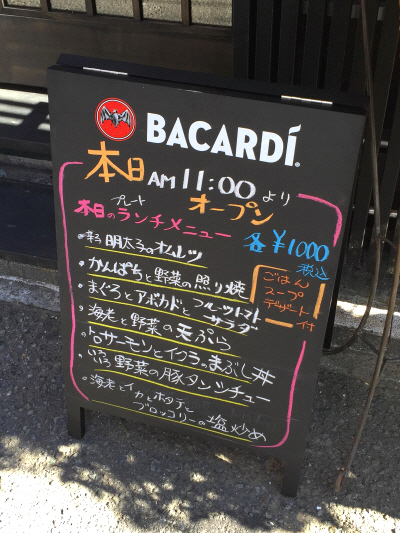 BACARDÍ
本日 AM 11:00 より
オープン
本日のプレートランチメニュー
各 ¥1000
税込
ごはん
スープ
デザート
付
・辛子明太子のオムレツ
・かんぱちと野菜の照り焼
・まぐろとアボカドとフルーツトマトサラダ
・海老と野菜の天ぷら
・トロサーモンとイクラのまぶし丼
・いろいろ野菜の豚タンシチュー
・海老とイカとホタテとブロッコリーの塩炒め